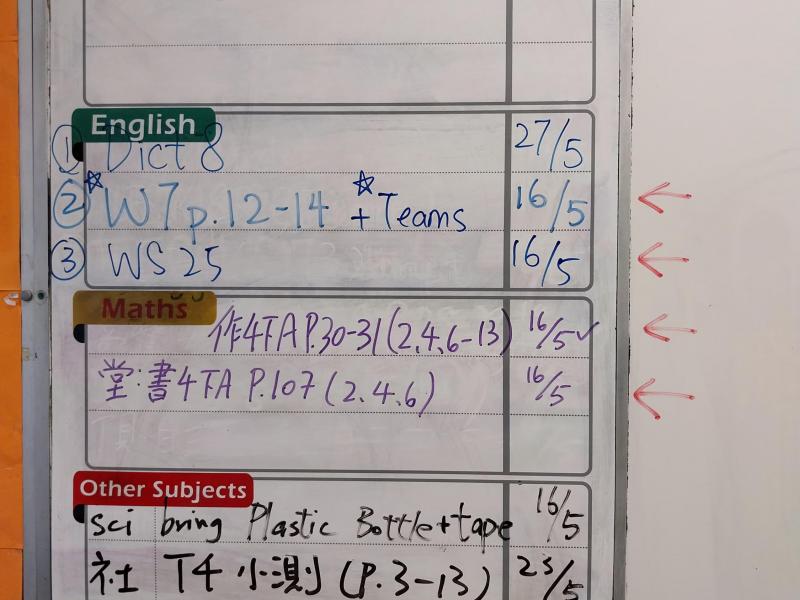 English
① Dict 8 27/5
② ☆ W7 p.12-14 ☆ + Teams 16/5 ←
③ WS 25 16/5 ←
Maths
作4TA P.30-31 (2,4,6-13) 16/5 ✓ ←
堂:書4TA P.107 (2.4.6) 16/5 ←
Other Subjects
sci bring Plastic Bottle + tape 16/5
社 T4 小測 (P.3-13) 23/5